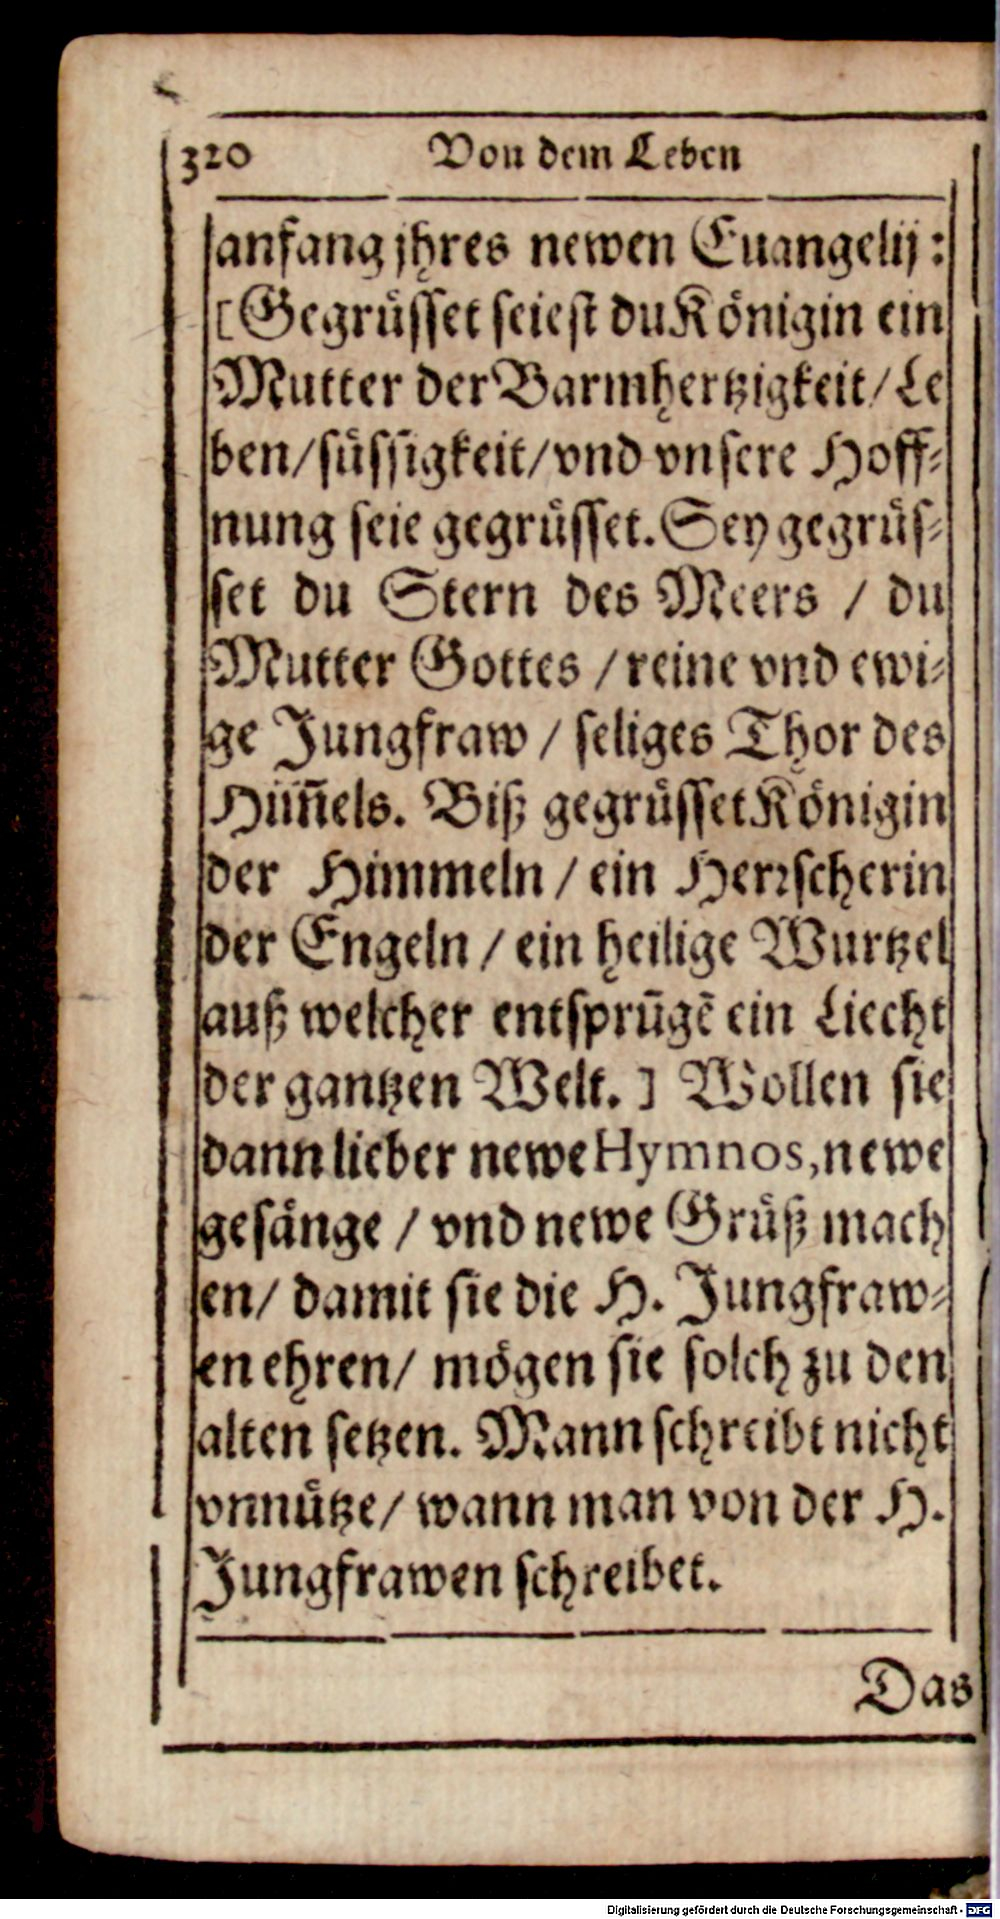 320 Von dem Leben
anfang jhres newen Euangelij:
[Gegrüsset seiest du Königin ein
Mutter der Barmhertzigkeit/ Le
ben/süssigkeit/vnd vnsere Hoff-
nung seie gegrüsset. Sey gegrüs-
set du Stern des Meers / du
Mutter Gottes / reine vnd ewi-
ge Jungfraw / seliges Thor des
Him̃els. Biß gegrüsset Königin
der Himmeln / ein Herrscherin
der Engeln / ein heilige Wurtzel
auß welcher entsprūgē ein Liecht
der gantzen Welt. ] Wollen sie
dann lieber newe Hymnos, newe
gesänge / vnd newe Grüß mach
en/ damit sie die H. Jungfraw-
en ehren/ mögen sie solch zu den
alten setzen. Mann schreibt nicht
vnnütze/ wann man von der H.
Jungfrawen schreibet.
Das
Digitalisierung gefördert durch die Deutsche Forschungsgemeinschaft - DFG